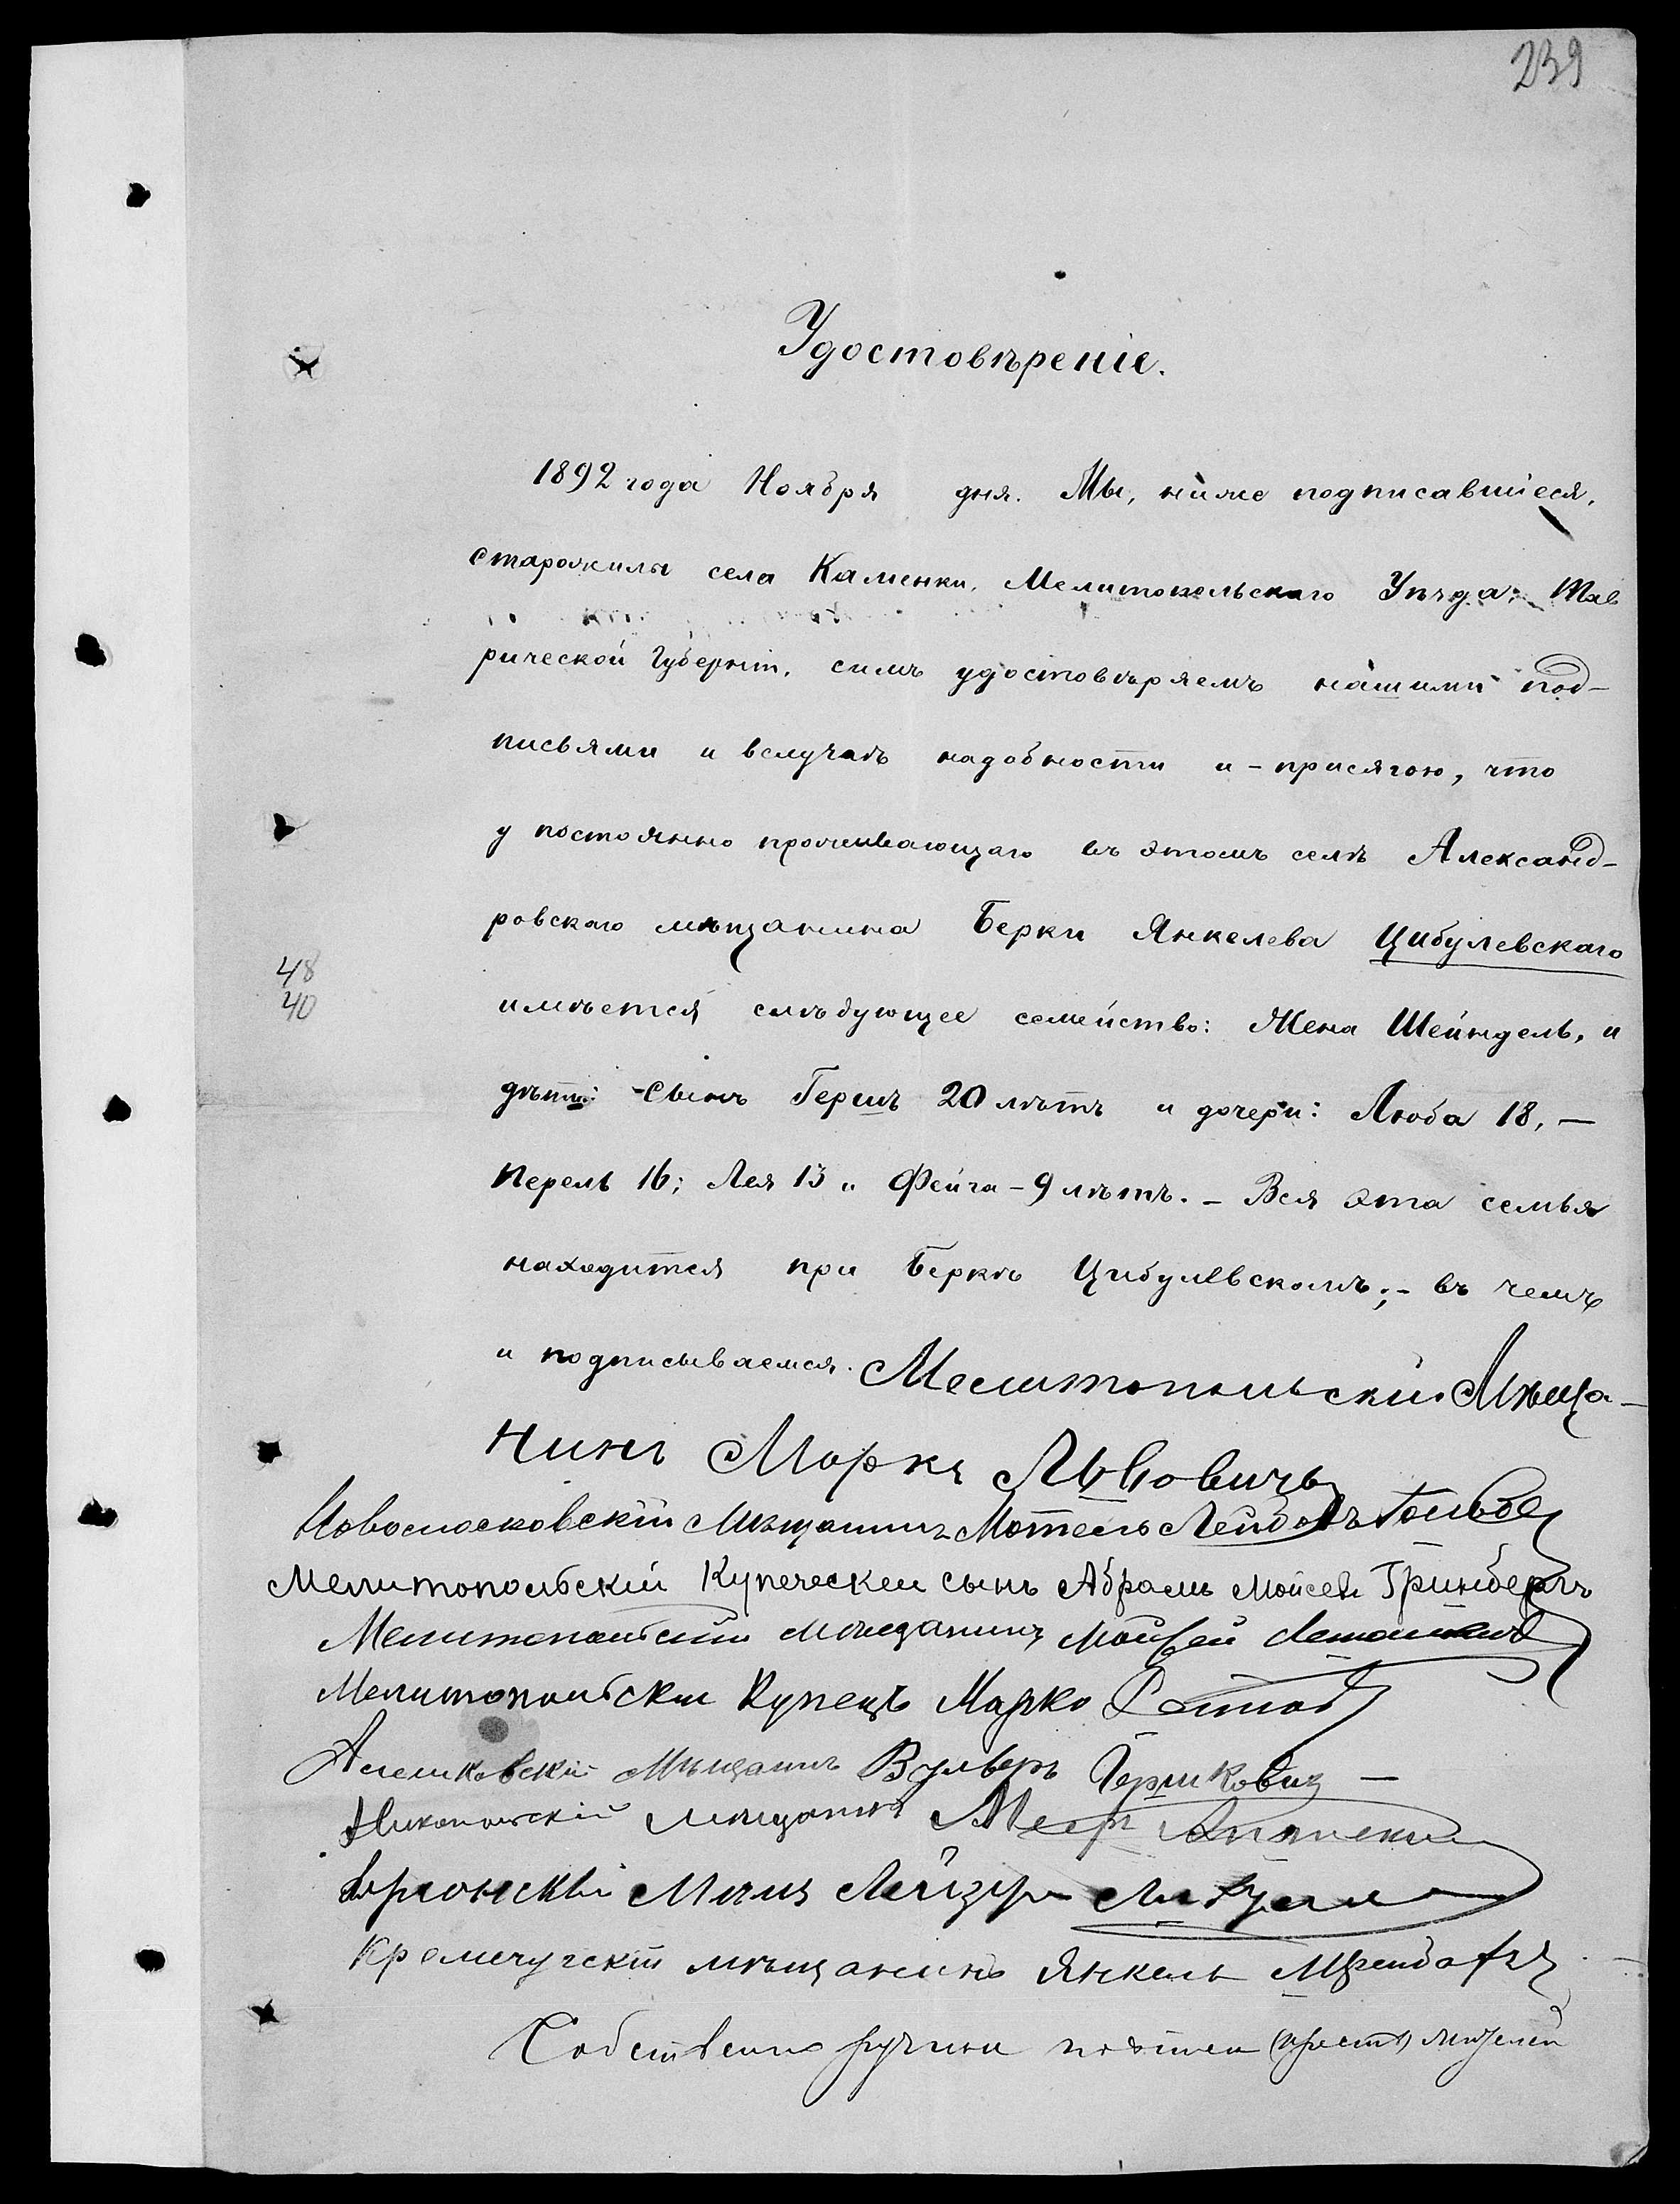 239
Удостовѣреніе.
1892 года Ноября дня. Мы, ниже подписавшіеся,
старожилы села Каменки, Мелитопольскаго Уѣзда, Тав
рической Губерніи, симъ удостовѣряемъ нашими под-
письями и вслучаѣ надобности и - присягою, что
у постоянно проживающаго въ этомъ селѣ Александ-
ровскаго мѣщанина Берки Янкелева Цибулевскаго
48
40
имѣется слѣдующее семейство: Жена Шейндель, и
дѣти: - Сынъ Гершъ 20 лѣтъ и дочери: Люба 18, —
Перель 16; Лея 13 и Фейга - 9 лѣтъ. - Вся эта семья
находится при Беркѣ Цибулевскомъ; - въ чемъ
и подписываемся. Мелитопольскій Мѣща-
нинъ Марка Львовичъ
Новомосковскій Мѣщанинъ Мотель Лейбовъ
Мелитопольскій Купеческій сынъ Абрамъ Мойсей Гринбергъ
Мелитопольскій мѣщанинъ Мойсей
Мелитопольскій Купецъ Марко
Алешковскій Мѣщанинъ Вульфъ Гершковичъ —
Никопольскій мѣщанинъ Мееръ
Мѣщ Лейзеръ
Кременчугскій мѣщанинъ Янкель
Собственно ручныя